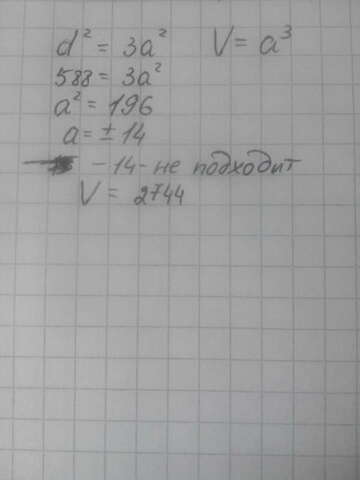 d² = 3a² V = a³
588 = 3a²
a² = 196
a = ± 14
-14 - не подходит
V = 2744